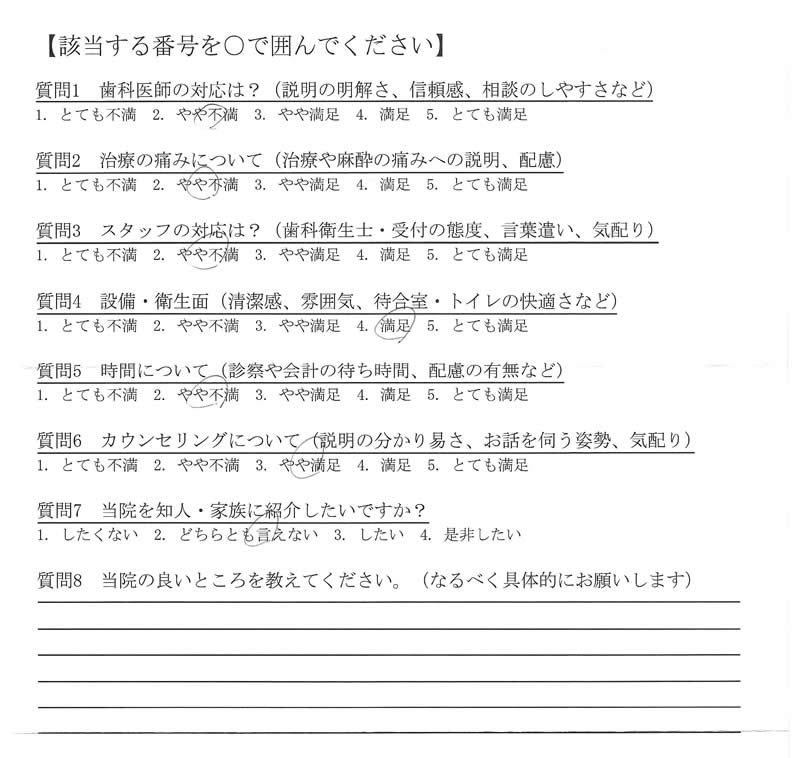 【該当する番号を〇で囲んでください】
質問1　歯科医師の対応は？（説明の明解さ、信頼感、相談のしやすさなど）
1. とても不満　2. やや不満　3. やや満足　4. 満足　5. とても満足
質問2　治療の痛みについて（治療や麻酔の痛みへの説明、配慮）
1. とても不満　2. やや不満　3. やや満足　4. 満足　5. とても満足
質問3　スタッフの対応は？（歯科衛生士・受付の態度、言葉遣い、気配り）
1. とても不満　2. やや不満　3. やや満足　4. 満足　5. とても満足
質問4　設備・衛生面（清潔感、雰囲気、待合室・トイレの快適さなど）
1. とても不満　2. やや不満　3. やや満足　4. 満足　5. とても満足
質問5　時間について（診察や会計の待ち時間、配慮の有無など）
1. とても不満　2. やや不満　3. やや満足　4. 満足　5. とても満足
質問6　カウンセリングについて（説明の分かり易さ、お話を伺う姿勢、気配り）
1. とても不満　2. やや不満　3. やや満足　4. 満足　5. とても満足
質問7　当院を知人・家族に紹介したいですか？
1. したくない　2. どちらとも言えない　3. したい　4. 是非したい
質問8　当院の良いところを教えてください。（なるべく具体的にお願いします）